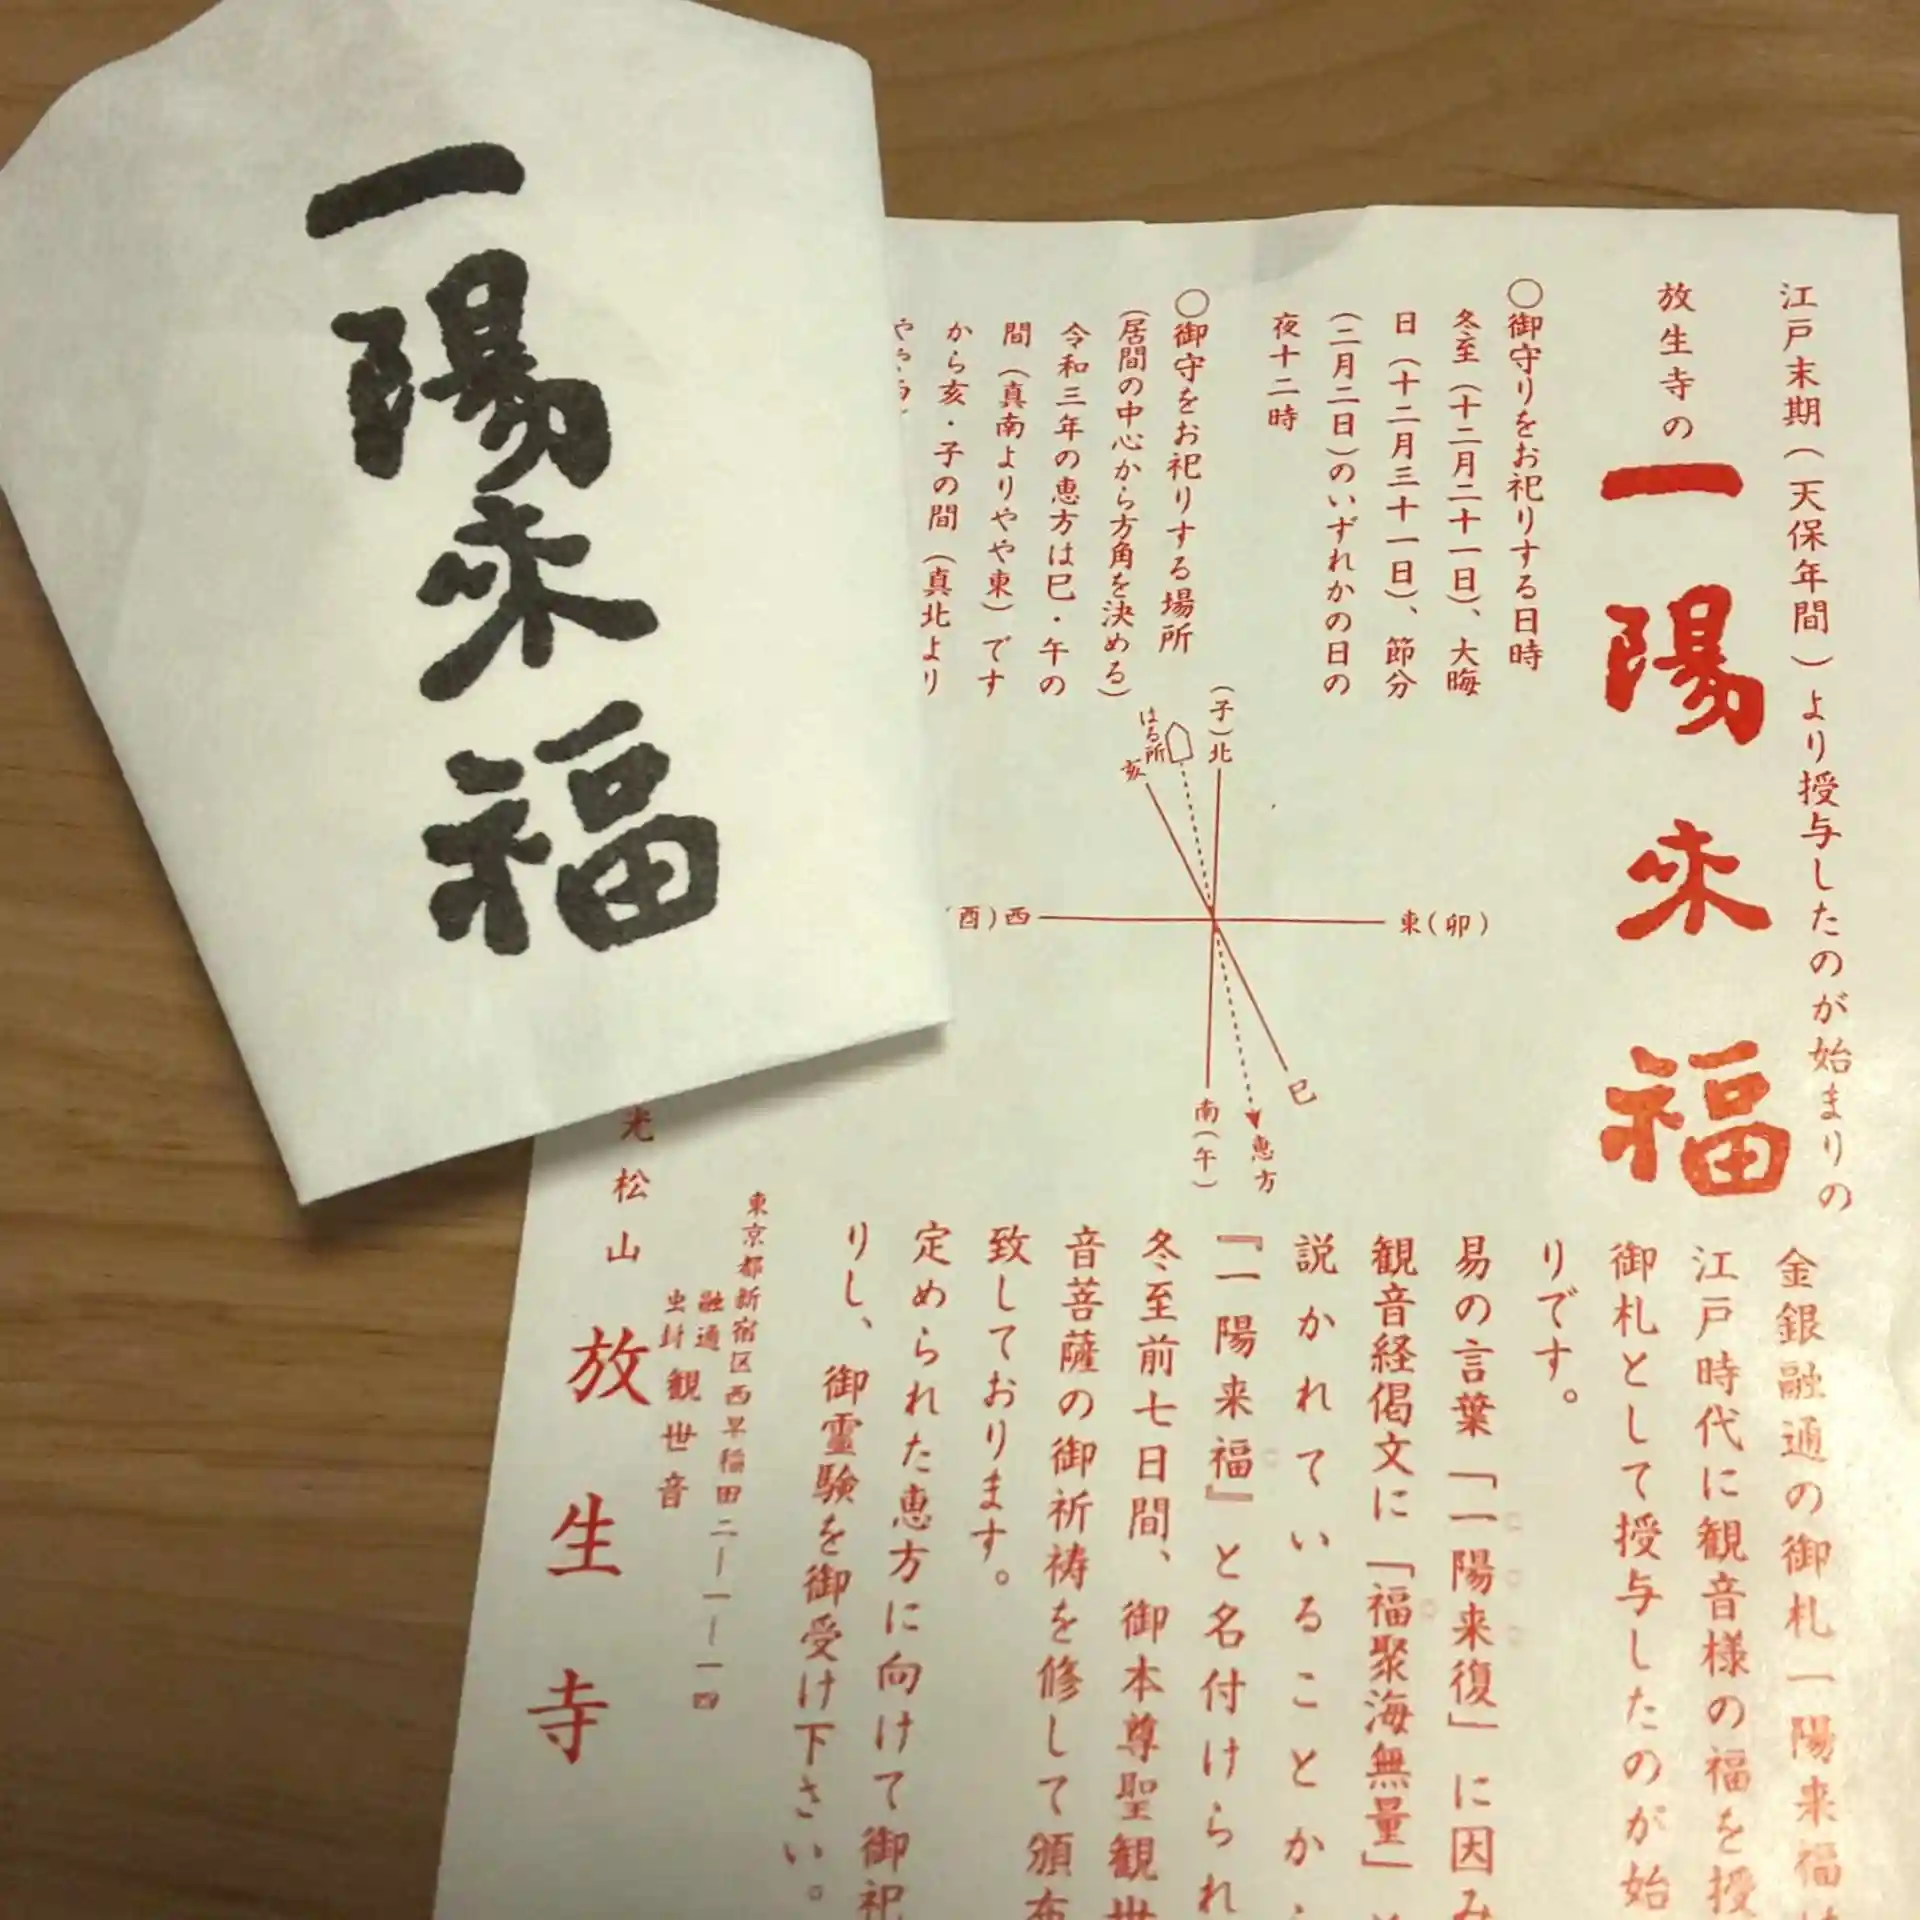 一陽来福
江戸末期(天保年間)より授与したのが始まりの
放生寺の
一陽来福
○御守りをお祀りする日時
冬至(十二月二十一日)、大晦
日(十二月三十一日)、節分
(二月二日)のいずれかの日の
夜十二時
○御守をお祀りする場所
(居間の中心から方角を決める)
令和三年の恵方は巳・午の
間(真南よりやや東)です
から亥・子の間(真北より
(子)北
はる所
亥
(酉)西
東(卯)
巳
南(午)
恵方
金銀融通の御札一陽来福は
江戸時代に観音様の福を授
御札として授与したのが始
りです。
易の言葉「一陽来復」に因み
観音経偈文に「福聚海無量」
説かれていることから
『一陽来福』と名付けられ
冬至前七日間、御本尊聖観世
音菩薩の御祈祷を修して頒布
致しております。
定められた恵方に向けて御祀
りし、御霊験を御受け下さい。
東京都新宿区西早稲田二ー一ー一四
融通
虫封
観世音
光松山
放生寺